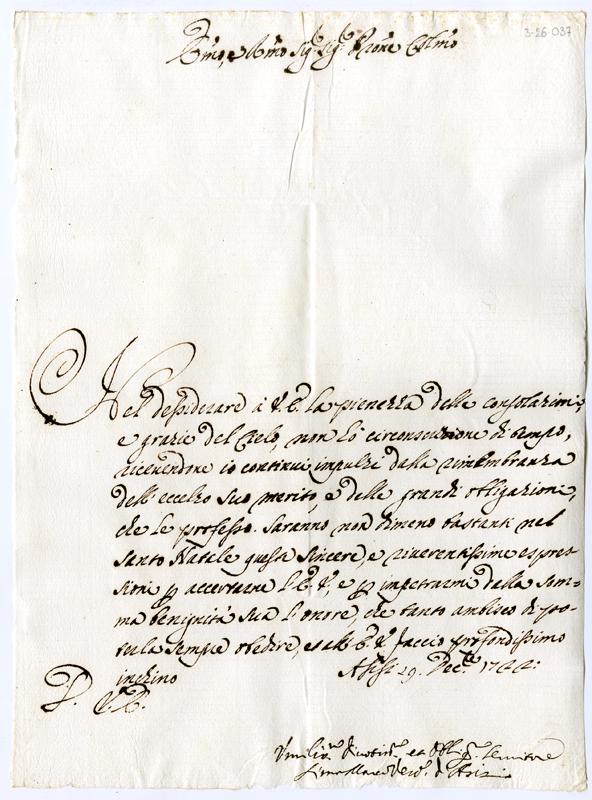 3-26-037
Em̃o, e Rm̃o Sig.r Sig.r Prone Colmo
Nel desiderare a V. E. la pienezza delle consolazioni,
e grazie del Cielo, non hò circonscrizione di tempo,
ricevendone io continui impulsi dalla rimembranza
dell' eccelso suo merito, e delle grandi obligazioni,
che le professo. Saranno non dimeno bastanti nel
Santo Natale queste sincere, e riverentissime espres-
sioni p accertarne l' E. V., e p impetrarmi dalla som-
ma benignità sua l' onore, che tanto ambisco di po-
terla sempre obedire, et all' E. V. faccio profondissimo
inchino
Assisi 19. Dec.re 1722:
D. V. E.
Umiliss.o Divotiss.o et Obblig.o Servitore
Vesc.o d'Asisi